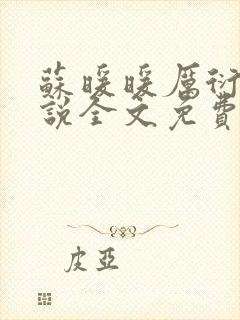 蘇暖暖厲衍
說全文免費
皮亞